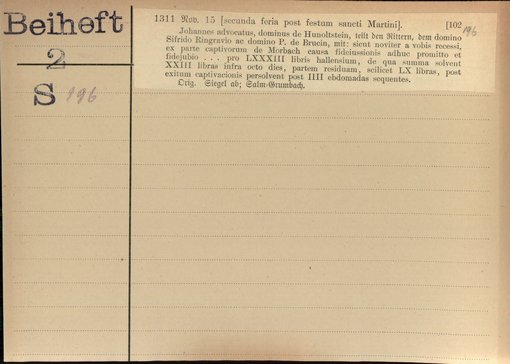 Beiheft
2
S 196
1311 Nov. 15 [secunda feria post festum sancti Martini]. [102
196
Johannes advocatus, dominus de Hunoltstein, teilt den Rittern, dem domino
Sifrido Ringravio ac domino P. de Brucin, mit: sicut noviter a vobis recessi,
ex parte captivorum de Morbach causa fideiussionis adhuc promitto et
fidejubio . . . pro LXXXIII libris hallensium, de qua summa solvent
XXIII libras infra octo dies, partem residuam, scilicet LX libras, post
exitum captivacionis persolvent post IIII ebdomadas sequentes.
Orig. Siegel ab; Salm-Grumbach.